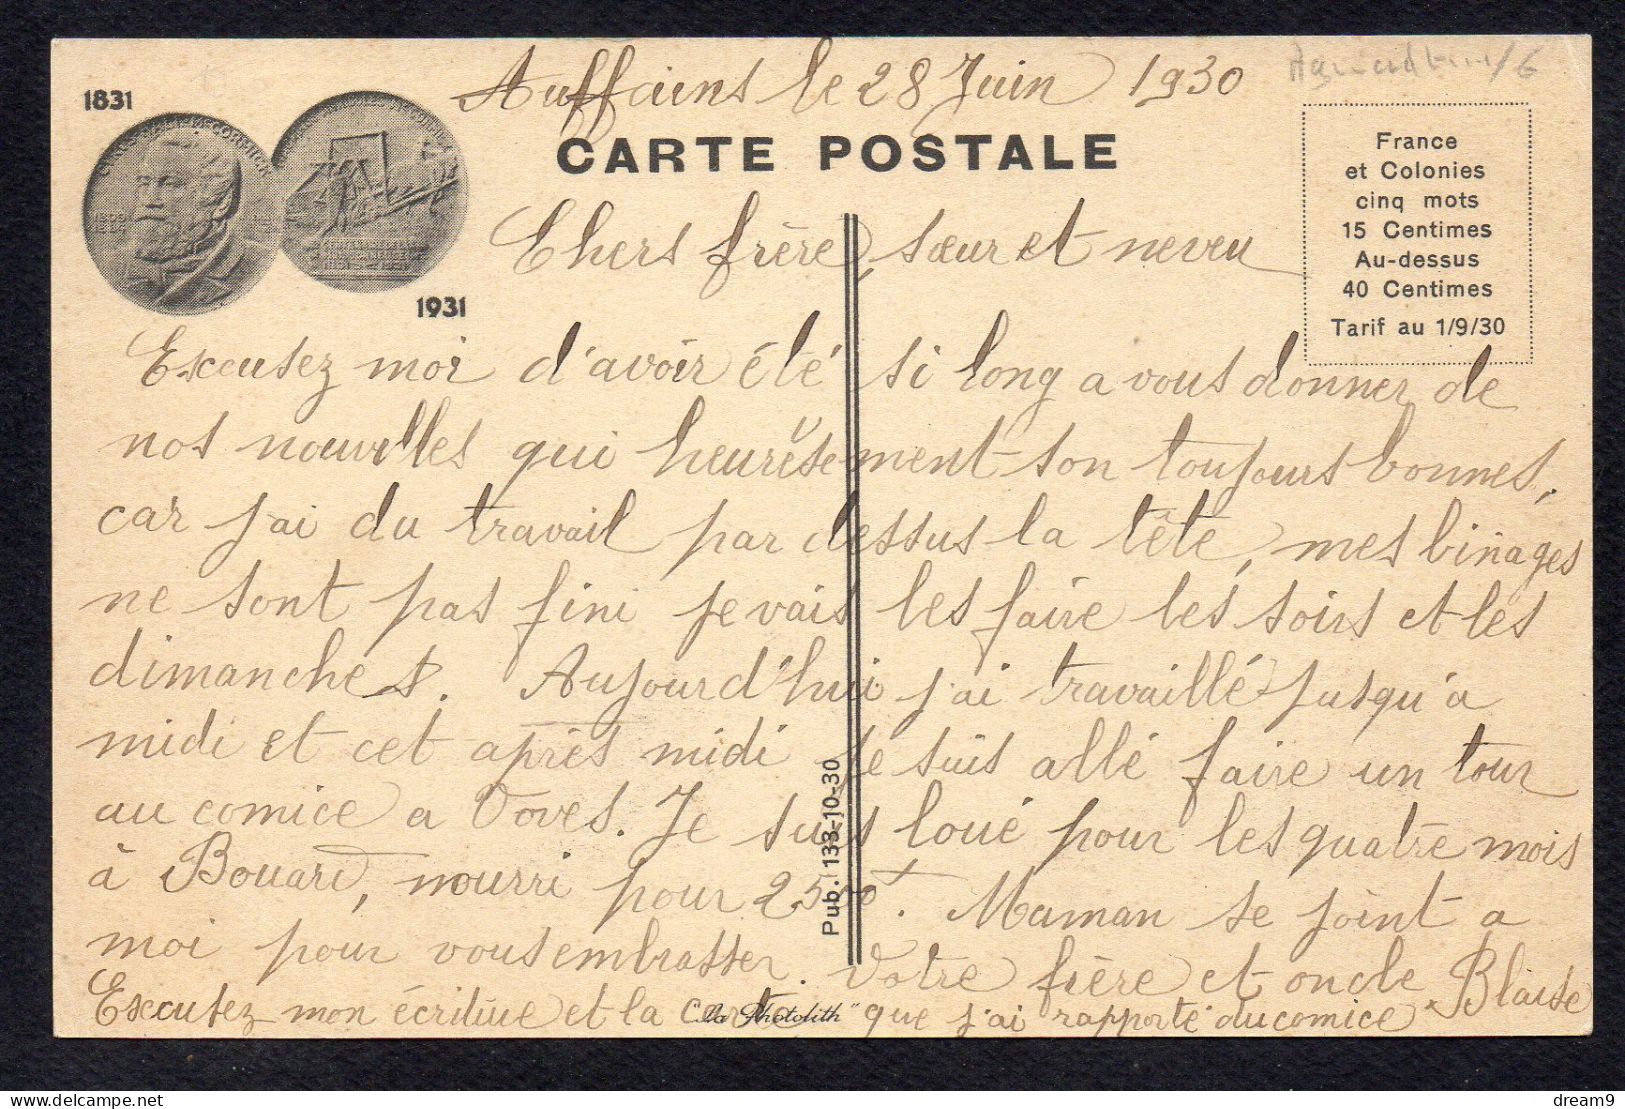 Auffains le 28 Juin 1930
1831
CARTE POSTALE
France
et Colonies
cinq mots
15 Centimes
Au-dessus
40 Centimes
Tarif au 1/9/30
1931
Chers frère, sœur et neveu
Excusez moi d'avoir été si long a vous donner de
nos nouvelles qui heuresement son toujours bonnes,
car j'ai du travail par dessus la tête, mes binages
ne sont pas fini je vais les faire les soirs et les
dimanches. Aujourd'hui j'ai travaillé jusqu'a
midi et cet après midi je suis allé faire un tour
au comice a Voves. Je suis loué pour les quatre mois
à Bouard, nourri pour 2500f. Maman se joint a
moi pour vous embrasser. Votre frère et oncle Blaise
Excusez mon écriture et la carte que j'ai rapporté du comice
Pub. 133-10-30
"La Photolith"
delcampe.net
dream9